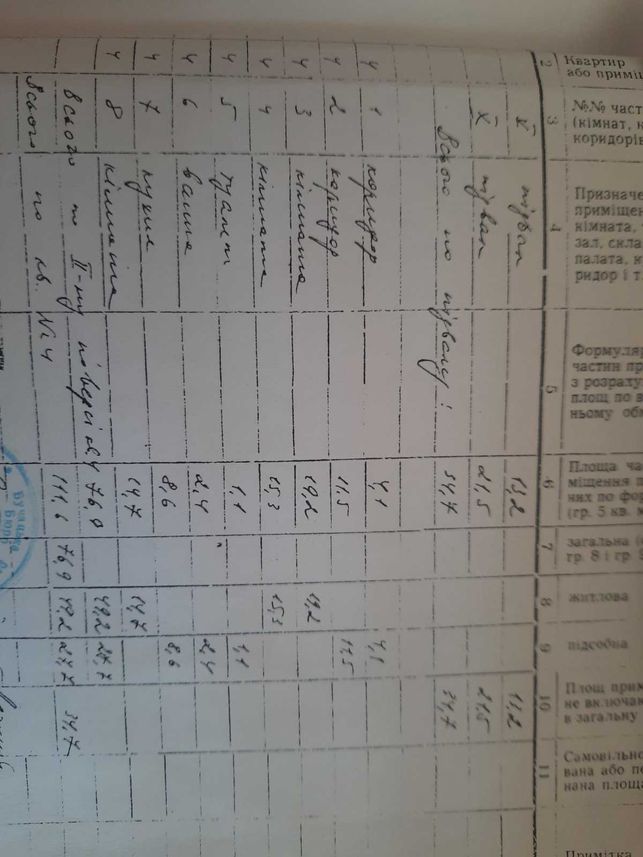 2 Квартир або приміщ
3 №№ част (кімнат, к коридорів
4 Призначе приміщен кімната, зал, скла палата, к ридор і т.
5 Формуляр частин пр з розраху площ по в ньому об
6 Площа ча міщення п них по фор (гр. 5 кв. м
7 загальна гр. 8 і гр. 9
8 житлова
9 підсобна
10 Площ прим не включа в загальну
11 Самовільно вана або пе нана площа
Примітка
V підвал 13,2
X підвал 21,5 21,5
Всього по підвалу: 34,7 34,7
4 1 коридор 4,1 4,1
4 2 коридор 11,5 11,5
4 3 кімната 19,2 19,2
4 4 кімната 15,3 15,3
4 5 туалет 1,1 1,1
4 6 ванна 2,4 2,4
4 7 кухня 8,6 8,6
4 8 кімната 14,7 14,7
Всього по II-му поверсі кв 4 76,9 49,2 27,7
Всього по кв. №4 111,6 76,9 49,2 27,7 34,7
Бучанське Бюро